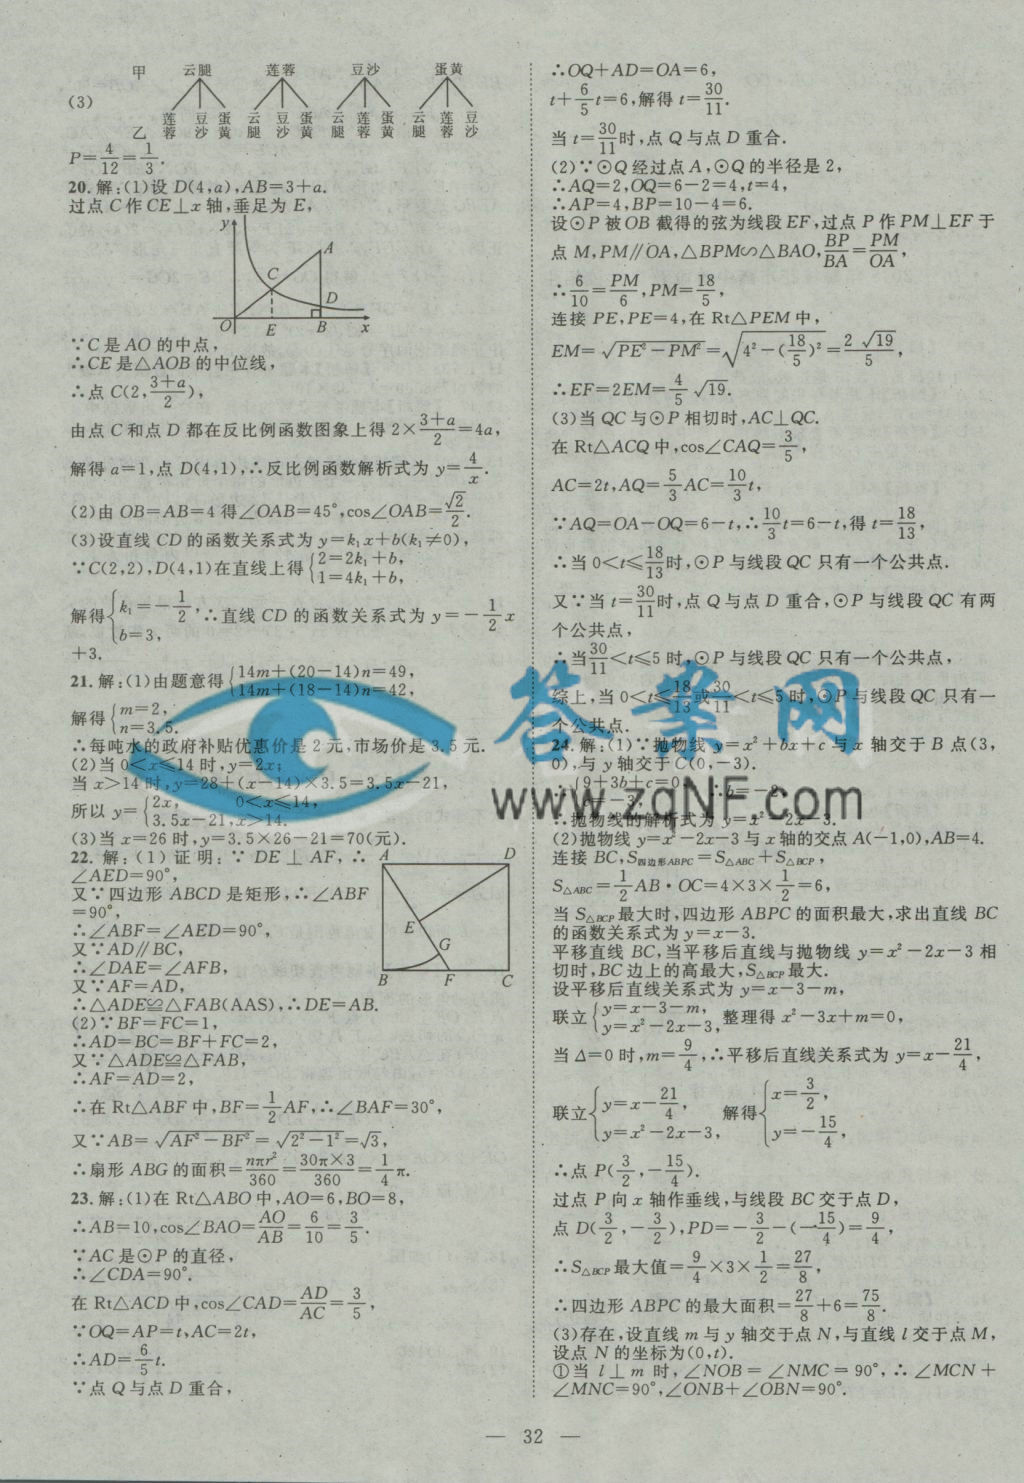 甲 云腿 莲蓉 豆沙 蛋黄
(3)
乙 莲蓉 豆沙 蛋黄 云腿 豆沙 蛋黄 云腿 莲蓉 蛋黄 云腿 莲蓉 豆沙
P=4/12=1/3.
20.解:(1)设 D(4,a),AB=3+a.
过点 C 作 CE⊥x 轴,垂足为 E,
y A C D O E B x
∵C 是 AO 的中点,
∴CE 是△AOB 的中位线,
∴点 C(2,(3+a)/2),
由点 C 和点 D 都在反比例函数图象上得 2×(3+a)/2=4a,
解得 a=1,点 D(4,1),∴反比例函数解析式为 y=4/x.
(2)由 OB=AB=4 得∠OAB=45°,cos∠OAB=√2/2.
(3)设直线 CD 的函数关系式为 y=k₁x+b(k₁≠0),
∵C(2,2),D(4,1)在直线上得{2=2k₁+b, 1=4k₁+b,
解得{k₁=-1/2, b=3, ∴直线 CD 的函数关系式为 y=-1/2x
+3.
21.解:(1)由题意得{14m+(20-14)n=49, 14m+(18-14)n=42,
解得{m=2, n=3.5.
∴每吨水的政府补贴优惠价是 2 元,市场价是 3.5 元.
(2)当 0<x≤14 时,y=2x;
当 x>14 时,y=28+(x-14)×3.5=3.5x-21,
所以 y={2x, 0<x≤14, 3.5x-21,x>14.
(3)当 x=26 时,y=3.5×26-21=70(元).
22.解:(1)证明:∵DE⊥AF,∴
∠AED=90°,
又∵四边形 ABCD 是矩形,∴∠ABF
=90°,
∴∠ABF=∠AED=90°,
又∵AD∥BC,
∴∠DAE=∠AFB,
又∵AF=AD,
∴△ADE≌△FAB(AAS),∴DE=AB.
A D E G B F C
(2)∵BF=FC=1,
∴AD=BC=BF+FC=2,
又∵△ADE≌△FAB,
∴AF=AD=2,
∴在 Rt△ABF 中,BF=1/2AF,∴∠BAF=30°,
又∵AB=√(AF²-BF²)=√(2²-1²)=√3,
∴扇形 ABG 的面积=nπr²/360=30π×3/360=1/4π.
23.解:(1)在 Rt△ABO 中,AO=6,BO=8,
∴AB=10,cos∠BAO=AO/AB=6/10=3/5.
∵AC 是⊙P 的直径,
∴∠CDA=90°.
在 Rt△ACD 中,cos∠CAD=AD/AC=3/5,
∵OQ=AP=t,AC=2t,
∴AD=6/5t.
∵点 Q 与点 D 重合,
∴OQ+AD=OA=6,
t+6/5t=6,解得 t=30/11.
当 t=30/11时,点 Q 与点 D 重合.
(2)∵⊙Q 经过点 A,⊙Q 的半径是 2,
∴AQ=2,OQ=6-2=4,t=4,
∴AP=4,BP=10-4=6.
设⊙P 被OB 截得的弦为线段 EF,过点 P 作 PM⊥EF 于
点 M,PM∥OA,△BPM∽△BAO,BP/BA=PM/OA,
∴6/10=PM/6,PM=18/5,
连接 PE,PE=4,在 Rt△PEM 中,
EM=√(PE²-PM²)=√(4²-(18/5)²)=2√19/5,
∴EF=2EM=4/5√19.
(3)当 QC 与⊙P 相切时,AC⊥QC.
在 Rt△ACQ 中,cos∠CAQ=3/5,
AC=2t,AQ=5/3AC=10/3t,
∵AQ=OA-OQ=6-t,∴10/3t=6-t,得 t=18/13,
∴当 0<t≤18/13时,⊙P 与线段 QC 只有一个公共点.
又∵当 t=30/11时,点 Q 与点 D 重合,⊙P 与线段 QC 有两
个公共点,
∴当30/11<t≤5 时,⊙P 与线段 QC 只有一个公共点,
综上,当 0<t≤18/13或30/11<t≤5 时,⊙P 与线段 QC 只有一
个公共点.
24.解:(1)∵抛物线 y=x²+bx+c 与 x 轴交于 B 点(3,
0),与 y 轴交于 C(0,-3).
∴{9+3b+c=0 ∴b=-2
∴抛物线的解析式为 y=x²-2x-3.
(2)抛物线 y=x²-2x-3 与 x 轴的交点 A(-1,0),AB=4.
连接 BC,S四边形ABPC=S△ABC+S△BCP,
S△ABC=1/2AB·OC=4×3×1/2=6,
当 S△BCP最大时,四边形 ABPC 的面积最大,求出直线 BC
的函数关系式为 y=x-3.
平移直线 BC,当平移后直线与抛物线 y=x²-2x-3 相
切时,BC 边上的高最大,S△BCP最大.
设平移后直线关系式为 y=x-3-m,
联立{y=x-3-m, y=x²-2x-3, 整理得 x²-3x+m=0,
当 Δ=0 时,m=9/4,∴平移后直线关系式为 y=x-21/4,
联立{y=x-21/4, y=x²-2x-3, 解得{x=3/2, y=-15/4,
∴点 P(3/2,-15/4).
过点 P 向 x 轴作垂线,与线段 BC 交于点 D,
点 D(3/2,-3/2),PD=-3/2-(-15/4)=9/4,
∴S△BCP最大值=9/4×3×1/2=27/8,
∴四边形 ABPC 的最大面积=27/8+6=75/8.
(3)存在,设直线 m 与 y 轴交于点 N,与直线 l 交于点 M,
设点 N 的坐标为(0,t).
①当 l⊥m 时,∠NOB=∠NMC=90°,∴∠MCN+
∠MNC=90°,∠ONB+∠OBN=90°.
答案网
www.zqNF.com
— 32 —